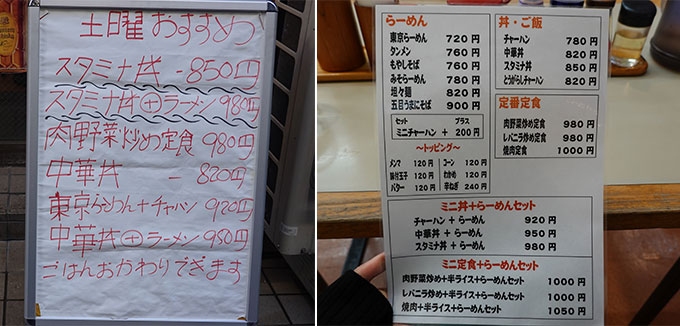 土曜おすすめ
スタミナ丼 - 850円
スタミナ丼⊕ラーメン 980円
肉野菜炒め定食 980円
中華丼 - 820円
東京らーめん+チャーハン 920円
中華丼⊕ラーメン 950円
ごはんおかわりできます
らーめん
東京らーめん 720円
タンメン 760円
もやしそば 760円
みそらーめん 780円
坦々麺 820円
五目うまにそば 900円
セット プラス
ミニチャーハン + 200円
～トッピング～
メンマ 120円 コーン 120円
味付玉子 120円 わかめ 120円
バター 120円 辛ねぎ 240円
丼・ご飯
チャーハン 780円
中華丼 820円
スタミナ丼 850円
とうがらしチャーハン 820円
定番定食
肉野菜炒め定食 980円
レバニラ炒め定食 980円
焼肉定食 1000円
ミニ丼+らーめんセット
チャーハン + らーめん 920円
中華丼 + らーめん 950円
スタミナ丼 + らーめん 980円
ミニ定食+らーめんセット
肉野菜炒め+半ライス+らーめん 1000円
レバニラ炒め+半ライス+らーめん 1000円
焼肉+半ライス+らーめん 1050円